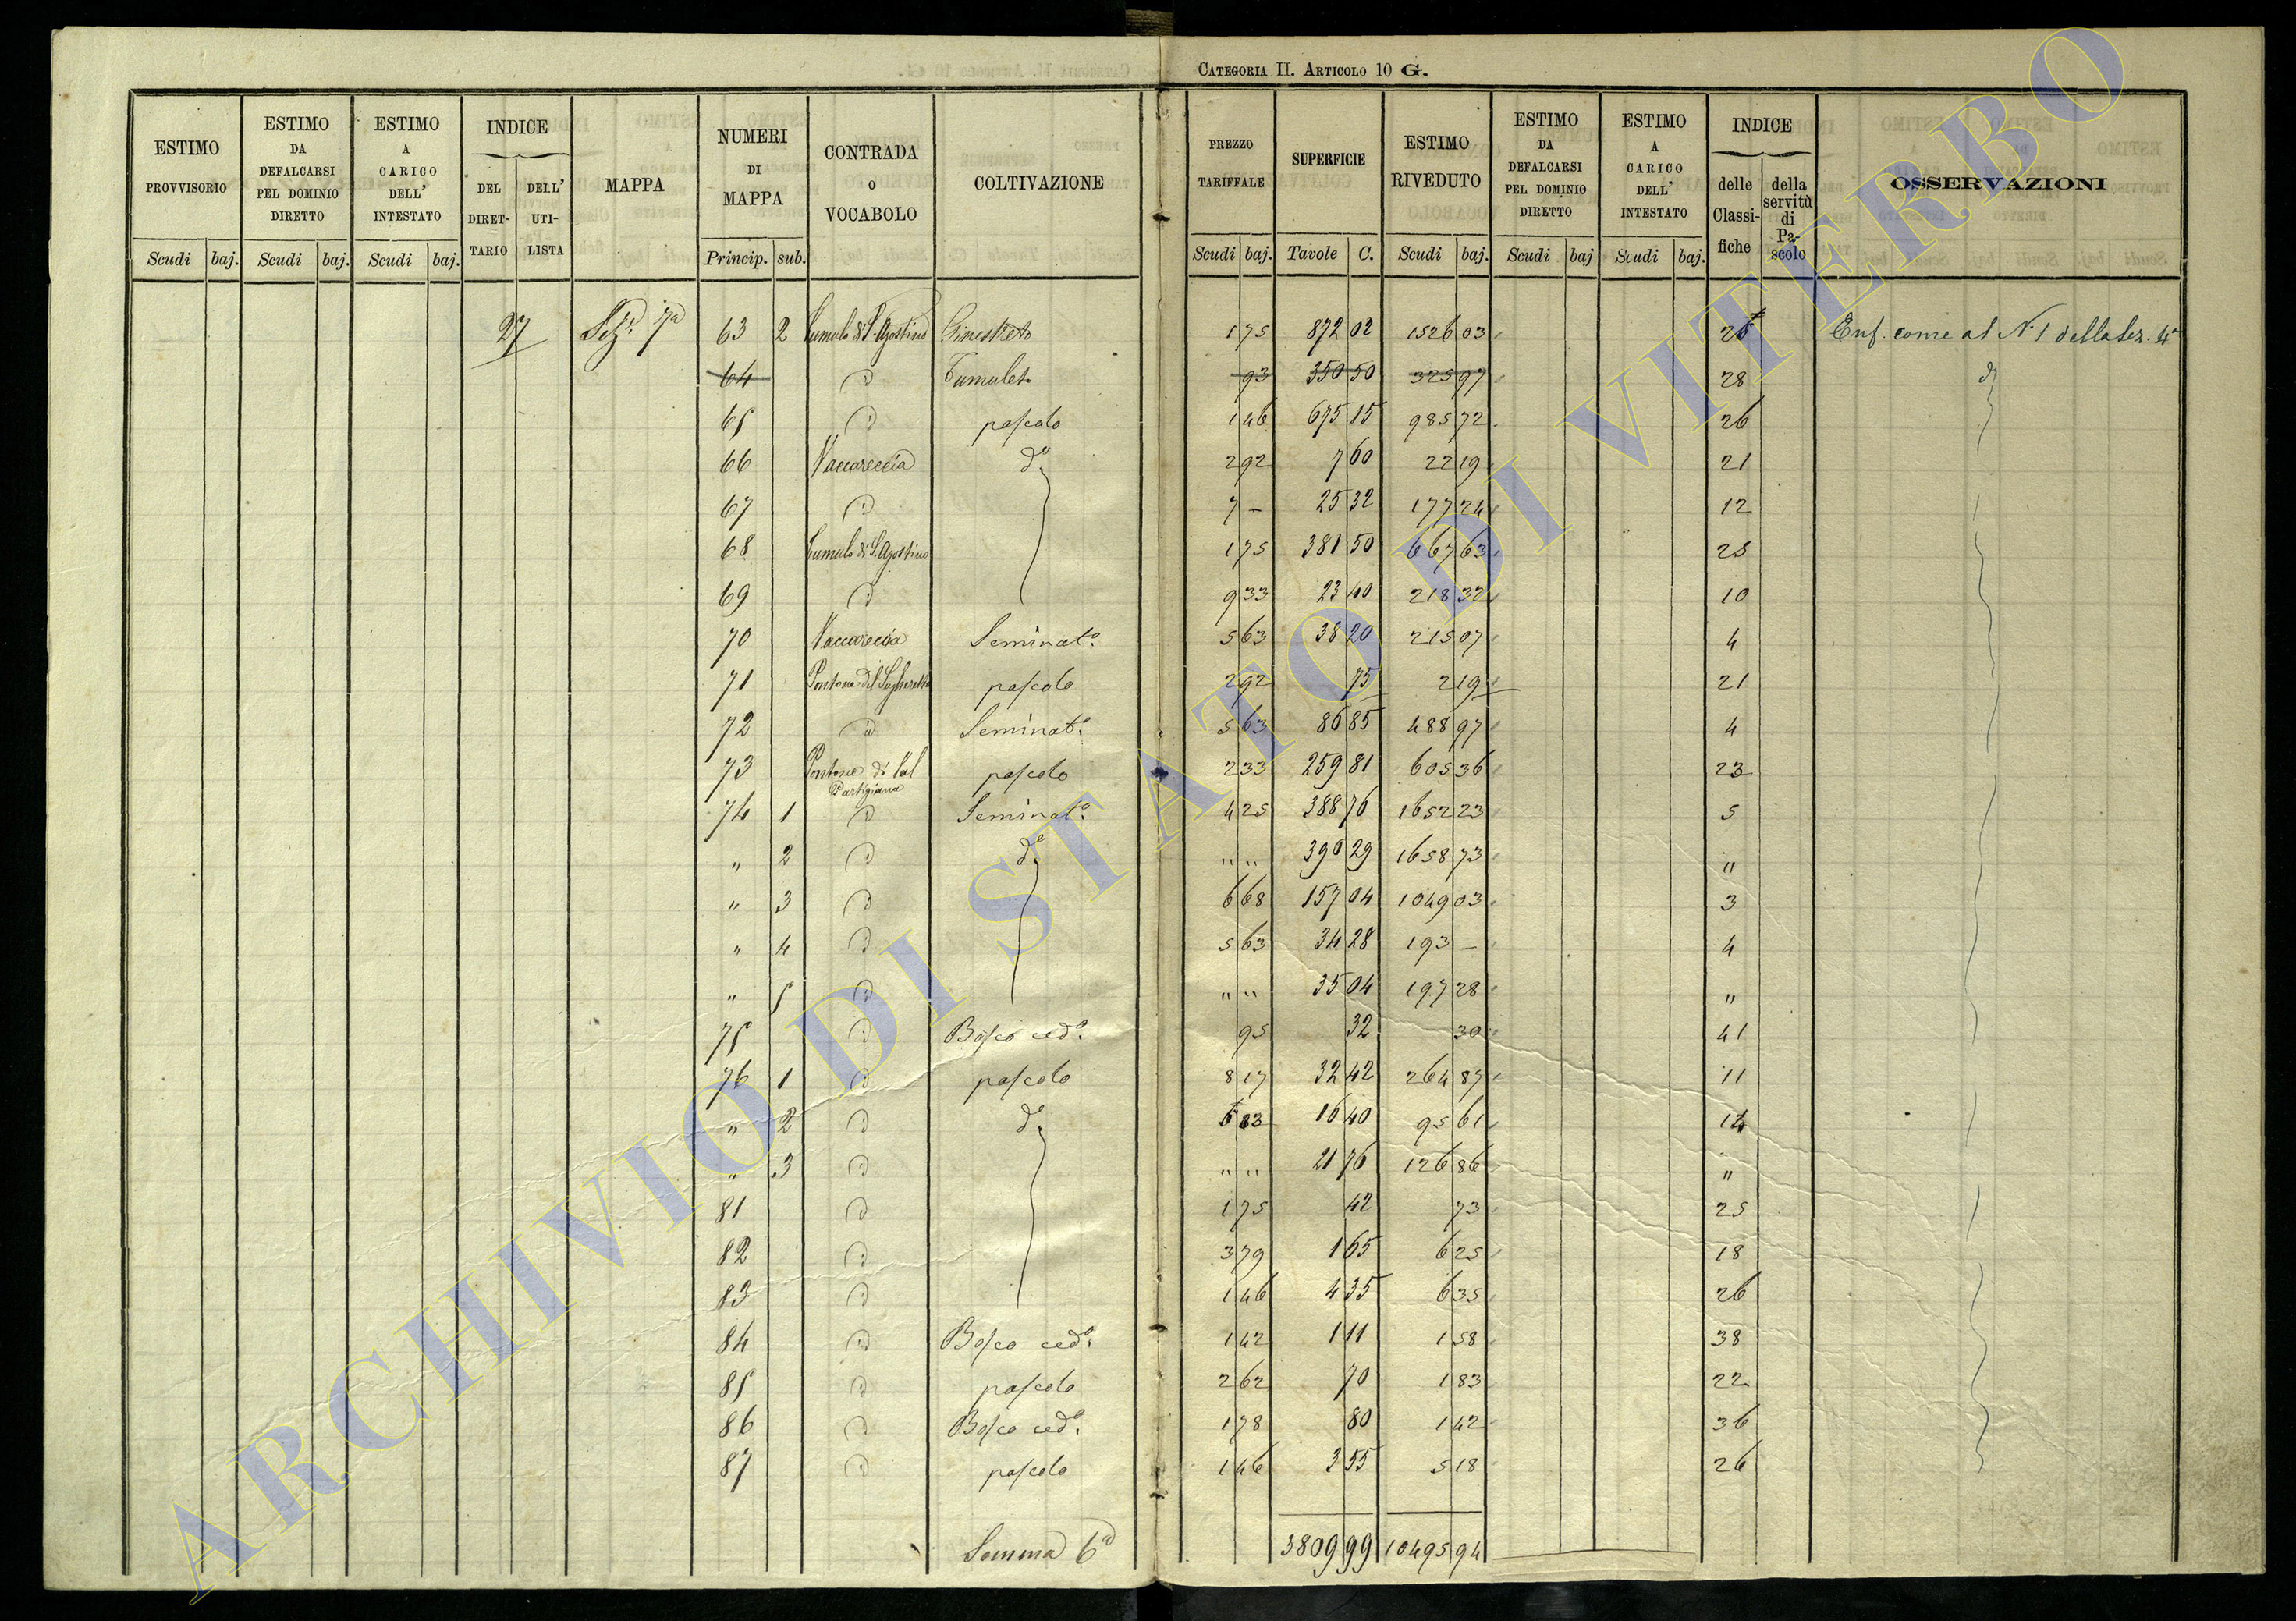 CATEGORIA II. ARTICOLO 10 G.
ESTIMO PROVVISORIO Scudi baj. | ESTIMO DA DEFALCARSI PEL DOMINIO DIRETTO Scudi baj. | ESTIMO A CARICO DELL' INTESTATO Scudi baj. | INDICE DEL DIRET-TARIO DELL' UTI-LISTA | MAPPA | NUMERI DI MAPPA Princip. sub. | CONTRADA O VOCABOLO | COLTIVAZIONE | PREZZO TARIFFALE Scudi baj. | SUPERFICIE Tavole C. | ESTIMO RIVEDUTO Scudi baj. | ESTIMO DA DEFALCARSI PEL DOMINIO DIRETTO Scudi baj | ESTIMO A CARICO DELL' INTESTATO Scudi baj. | INDICE delle Classi-fiche della servitù di Pa-scolo | OSSERVAZIONI
27 Sez. 7a 63 2 Tumulo di S. Agostino Ginestreto 1 75 872 02 1526 03 25 Enf. come al N. 1 della Sez. 4a
64 d Tumuleto 93 350 50 325 97 28 d
65 d pascolo 1 46 675 15 985 72 26
66 Vaccareccia do 2 92 7 60 22 19 21
67 d 7 – 25 32 177 24 12
68 Tumulo di S. Agostino 1 75 381 50 667 63 25
69 d 9 33 23 40 218 32 10
70 Vaccareccia Seminato. 5 63 38 20 215 07 4
71 Pontone del Sugheretto pascolo 2 92 75 2 19 21
72 d Seminato. 5 63 86 85 488 97 4
73 Pontone di Val Partigiana pascolo 2 33 259 81 605 36 23
74 1 d Seminato. 4 25 388 76 1652 23 5
" 2 d do " " 390 29 1658 73 "
" 3 d 6 68 157 04 1049 03 3
" 4 d 5 63 34 28 193 – 4
" 5 d " " 35 04 197 28 "
75 d Bosco cedo. 95 32 30 41
76 1 d pascolo 8 17 32 42 264 87 11
" 2 d do 16 40 95 61 14
" 3 d " " 21 76 126 86 "
81 d 1 75 42 73 25
82 d 3 79 1 65 6 25 18
83 d 1 46 4 35 6 35 26
84 d Bosco cedo. 1 42 1 11 1 58 38
85 d pascolo 2 62 70 1 83 22
86 d Bosco cedo. 1 78 80 1 42 36
87 d pascolo 1 46 3 55 5 18 26
Somma 6a 3809 99 10495 94
ARCHIVIO DI STATO DI VITERBO